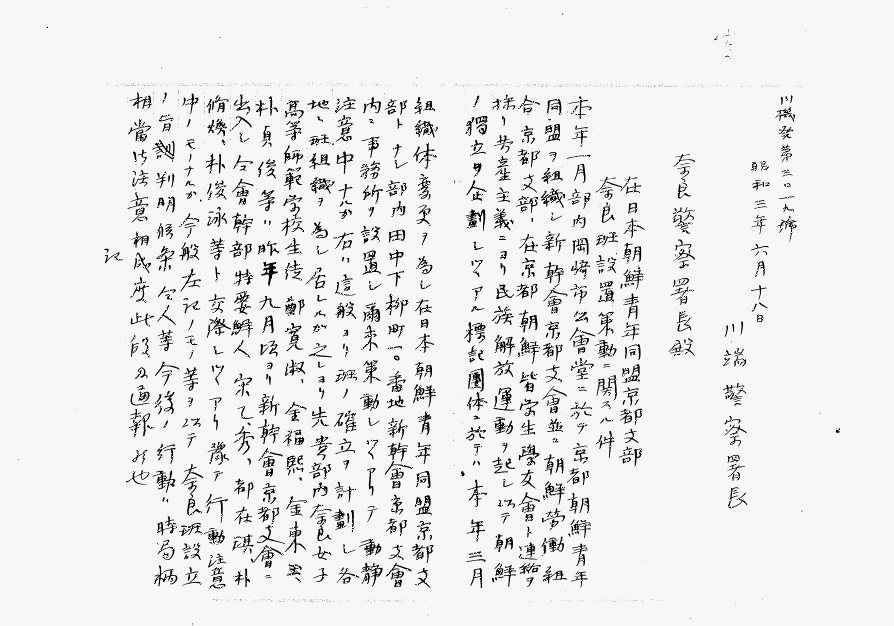 川機発第三〇一九號
昭和三年六月十八日
川端警察署長
奈良警察署長殿
在日本朝鮮青年同盟京都支部
奈良班設置策動ニ関スル件
本年一月部内岡崎市公會堂ニ於テ京都朝鮮青年
同盟ヲ組織シ新幹會京都支會並ニ朝鮮労働組
合京都支部、在京都朝鮮 学生學友會ト連絡ヲ
採リ共産主義ニヨリ民族解放運動ヲ起シ以テ朝鮮
ノ獨立ヲ企劃シツヽアル標記團体ニ於テハ本年三月
組織体変更ヲ為シ在日本朝鮮青年同盟京都支
部トナシ部内田中下柳町一〇番地新幹會京都支會
内ニ事務所ヲ設置シ爾来策動シツヽアリテ動静
注意中ナルカ右ハ這般ヨリ班ノ確立ヲ計劃シ各
地ニ班組織ヲ為シ居レルカ之レヨリ先貴部内奈良女子
高等師範学校生徒鄭寛淑、金福熙、金東
朴貞俊等ハ昨年九月頃ヨリ新幹會京都支會ニ
出入シ仝會幹部特要鮮人宋乙秀、都在琪、朴
脩 、朴俊泳等ト交際シツヽアリ豫テ行動注意
中ノモノナルカ今般左記ノモノ等ヲ以テ奈良班設立
ノ旨判明候条仝人等今後ノ行動ハ時局柄
相當御注意相成度此段及通報候也
記